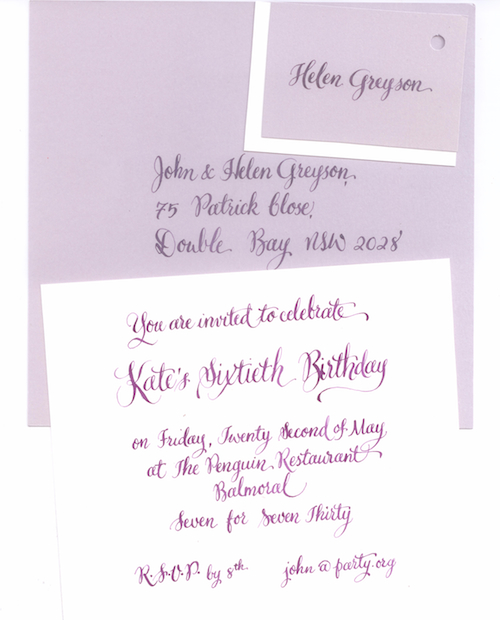 Helen Greyson
John & Helen Greyson,
75 Patrick Close,
Double Bay NSW 2028
You are invited to celebrate
Kate's Sixtieth Birthday
on Friday, Twenty Second of May,
at The Penguin Restaurant
Balmoral
Seven for Seven Thirty
R.S.V.P. by 8th. john@party.org